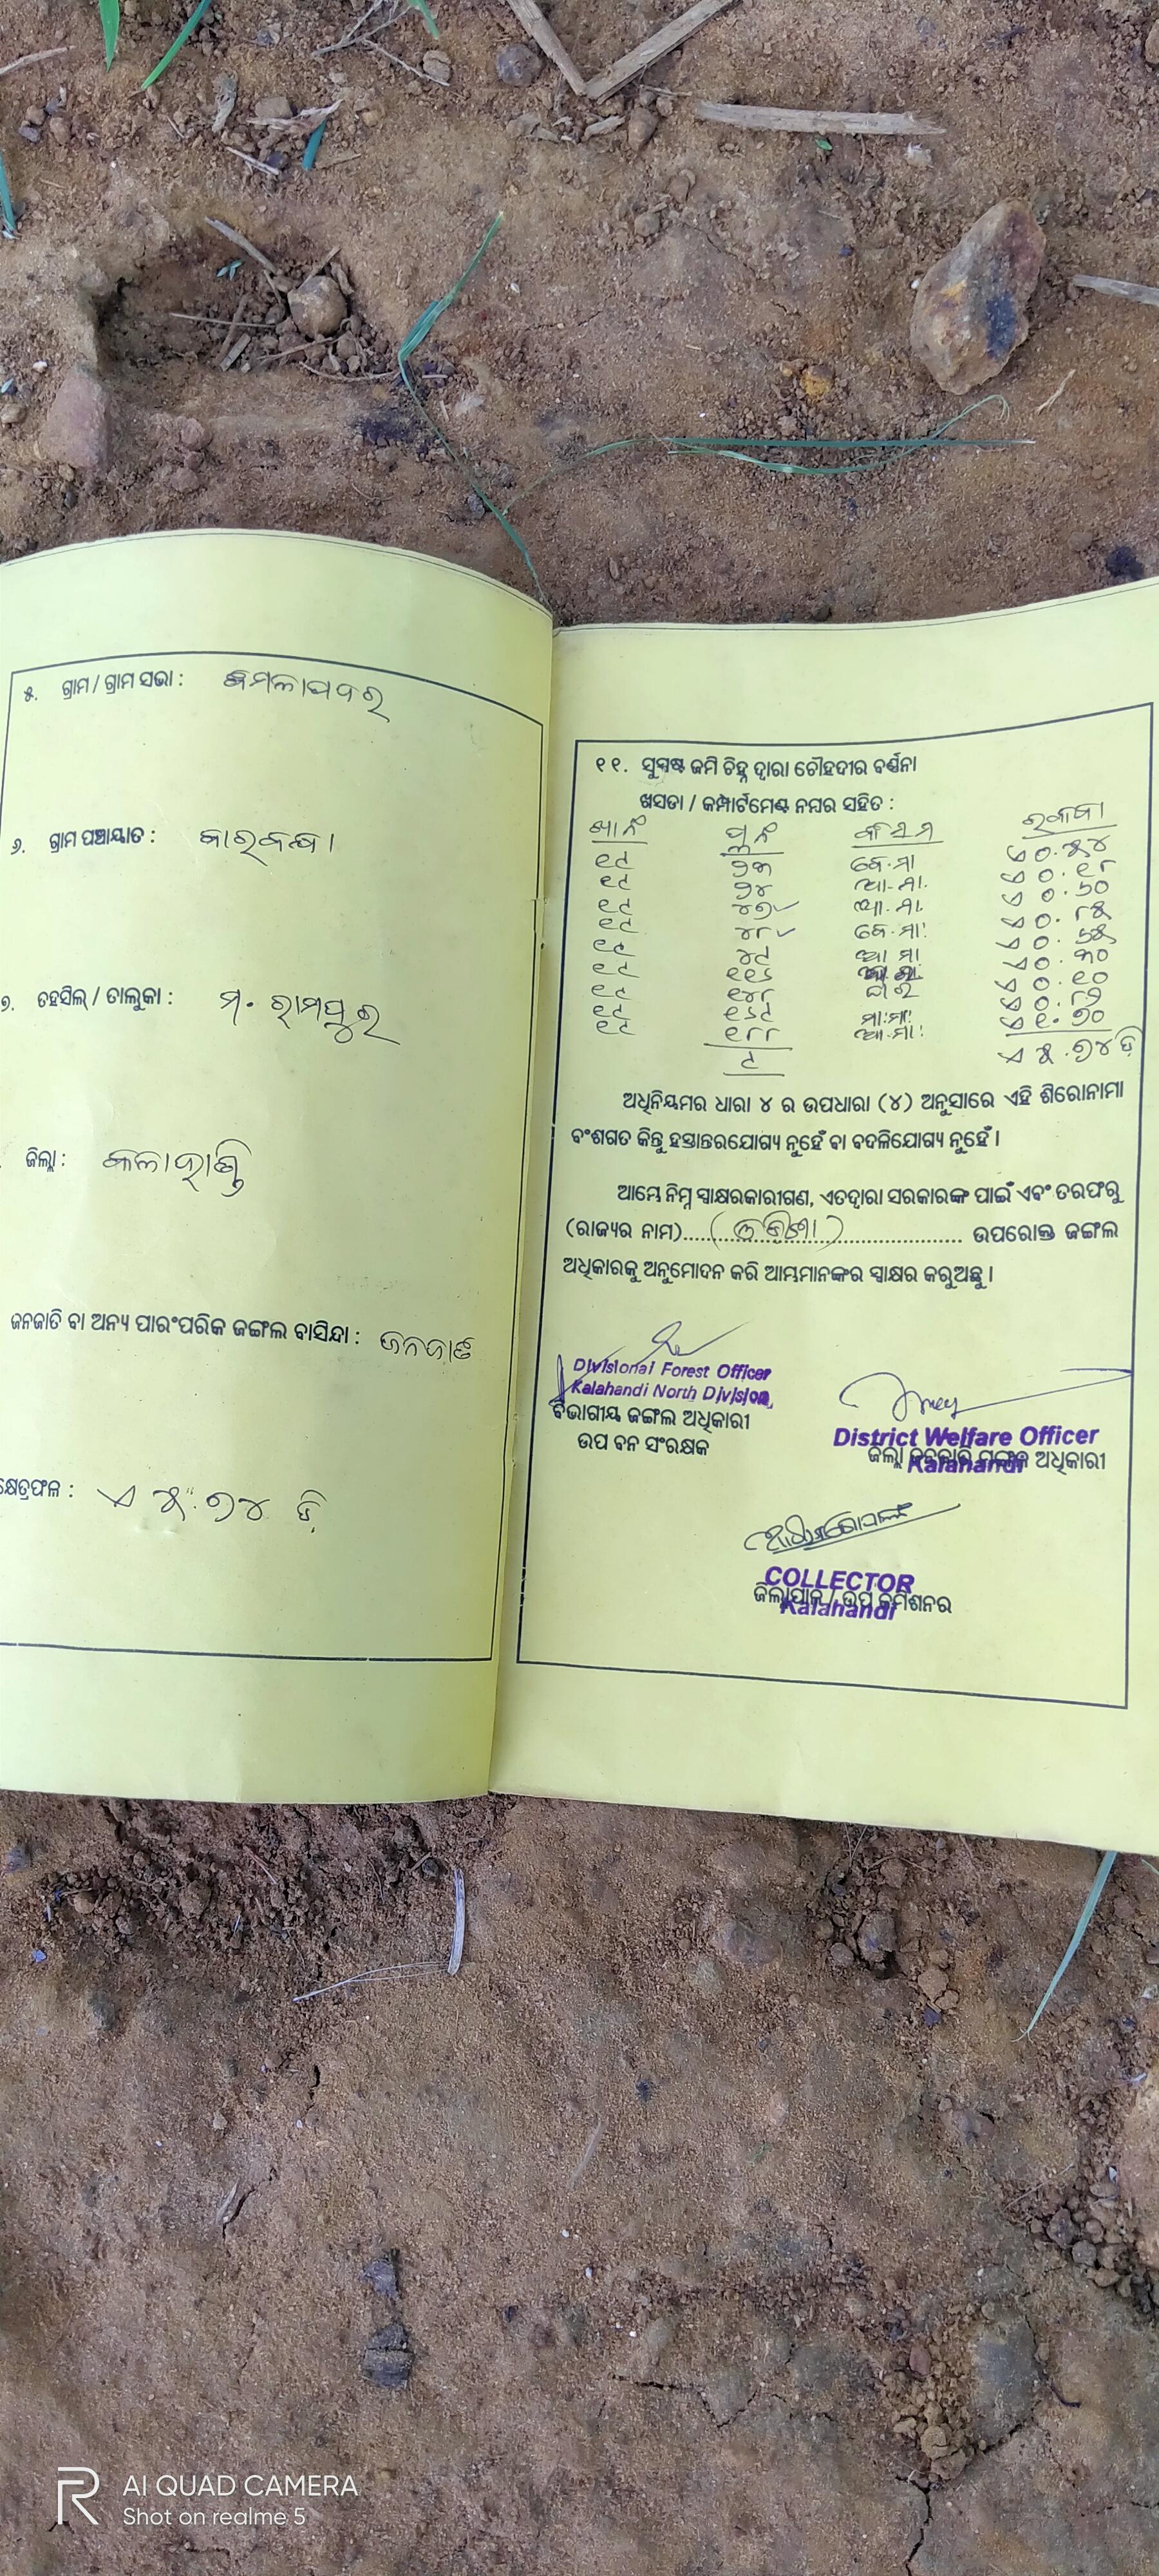 ୫. ଗ୍ରାମ / ଗ୍ରାମ ସଭା : କମଳାପଦର
୬. ଗ୍ରାମ ପଞ୍ଚାୟାତ :
୭. ତହସିଲ୍ / ତାଲୁକା : ମ. ରାମପୁର
ଜିଲ୍ଲା :
ଜନଜାତି ବା ଅନ୍ୟ ପାରଂପରିକ ଜଙ୍ଗଲ ବାସିନ୍ଦା : ଜନଜାତି
କ୍ଷେତ୍ରଫଳ : ଏ ୫.୭୪ ଡି
୧୧. ସୁସ୍ପଷ୍ଟ ଜମି ଚିହ୍ନ ଦ୍ୱାରା ଚୌହଦୀର ବର୍ଣ୍ଣନା
ଖସଡା / କମ୍ପାର୍ଟମେଣ୍ଟ ନମ୍ବର ସହିତ :
ଖା ନଂ ପ୍ଲ ନଂ କିସମ ରକବା
୧୯ ଏ ୦.୫୪
୧୯ ଏ ୦.୧୮
୧୯ ୪୭ ଆ.ମା. ଏ ୦.୬୦
୧୯ ୪୮ ଏ ୦.୮୫
୧୯ ୪୯ ଆ ମା ଏ ୦.୬୫
୧୯ ୧୧୬ ଏ ୦.୩୦
୧୯ ୧୪୮ ଏ ୦.୧୦
୧୯ ୧୬୯ ଏ ୦.୮୨
୧୯ ୧୮୮ ଆ.ମା. ଏ ୧.୭୦
୯ ଏ ୫.୭୪ ଡି
ଅଧିନିୟମର ଧାରା ୪ ର ଉପଧାରା (୪) ଅନୁସାରେ ଏହି ଶିରୋନାମା
ବଂଶଗତ କିନ୍ତୁ ହସ୍ତାନ୍ତରଯୋଗ୍ୟ ନୁହେଁ ବା ବଦଳିଯୋଗ୍ୟ ନୁହେଁ ।
ଆମ୍ଭେ ନିମ୍ନ ସ୍ୱାକ୍ଷରକାରୀଗଣ, ଏତଦ୍ୱାରା ସରକାରଙ୍କ ପାଇଁ ଏବଂ ତରଫରୁ
(ରାଜ୍ୟର ନାମ).....(ଓଡିଶା)..................... ଉପରୋକ୍ତ ଜଙ୍ଗଲ
ଅଧିକାରକୁ ଅନୁମୋଦନ କରି ଆମ୍ଭମାନଙ୍କର ସ୍ୱାକ୍ଷର କରୁଅଛୁ ।
Divisional Forest Officer
Kalahandi North Division,
ବିଭାଗୀୟ ଜଙ୍ଗଲ ଅଧିକାରୀ
ଉପ ବନ ସଂରକ୍ଷକ
District Welfare Officer
ଜିଲ୍ଲା ଜନଜାତି ମଙ୍ଗଳ ଅଧିକାରୀ
Kalahandi
COLLECTOR
ଜିଲ୍ଲାପାଳ / ଉପ କମିଶନର
Kalahandi
AI QUAD CAMERA
Shot on realme 5